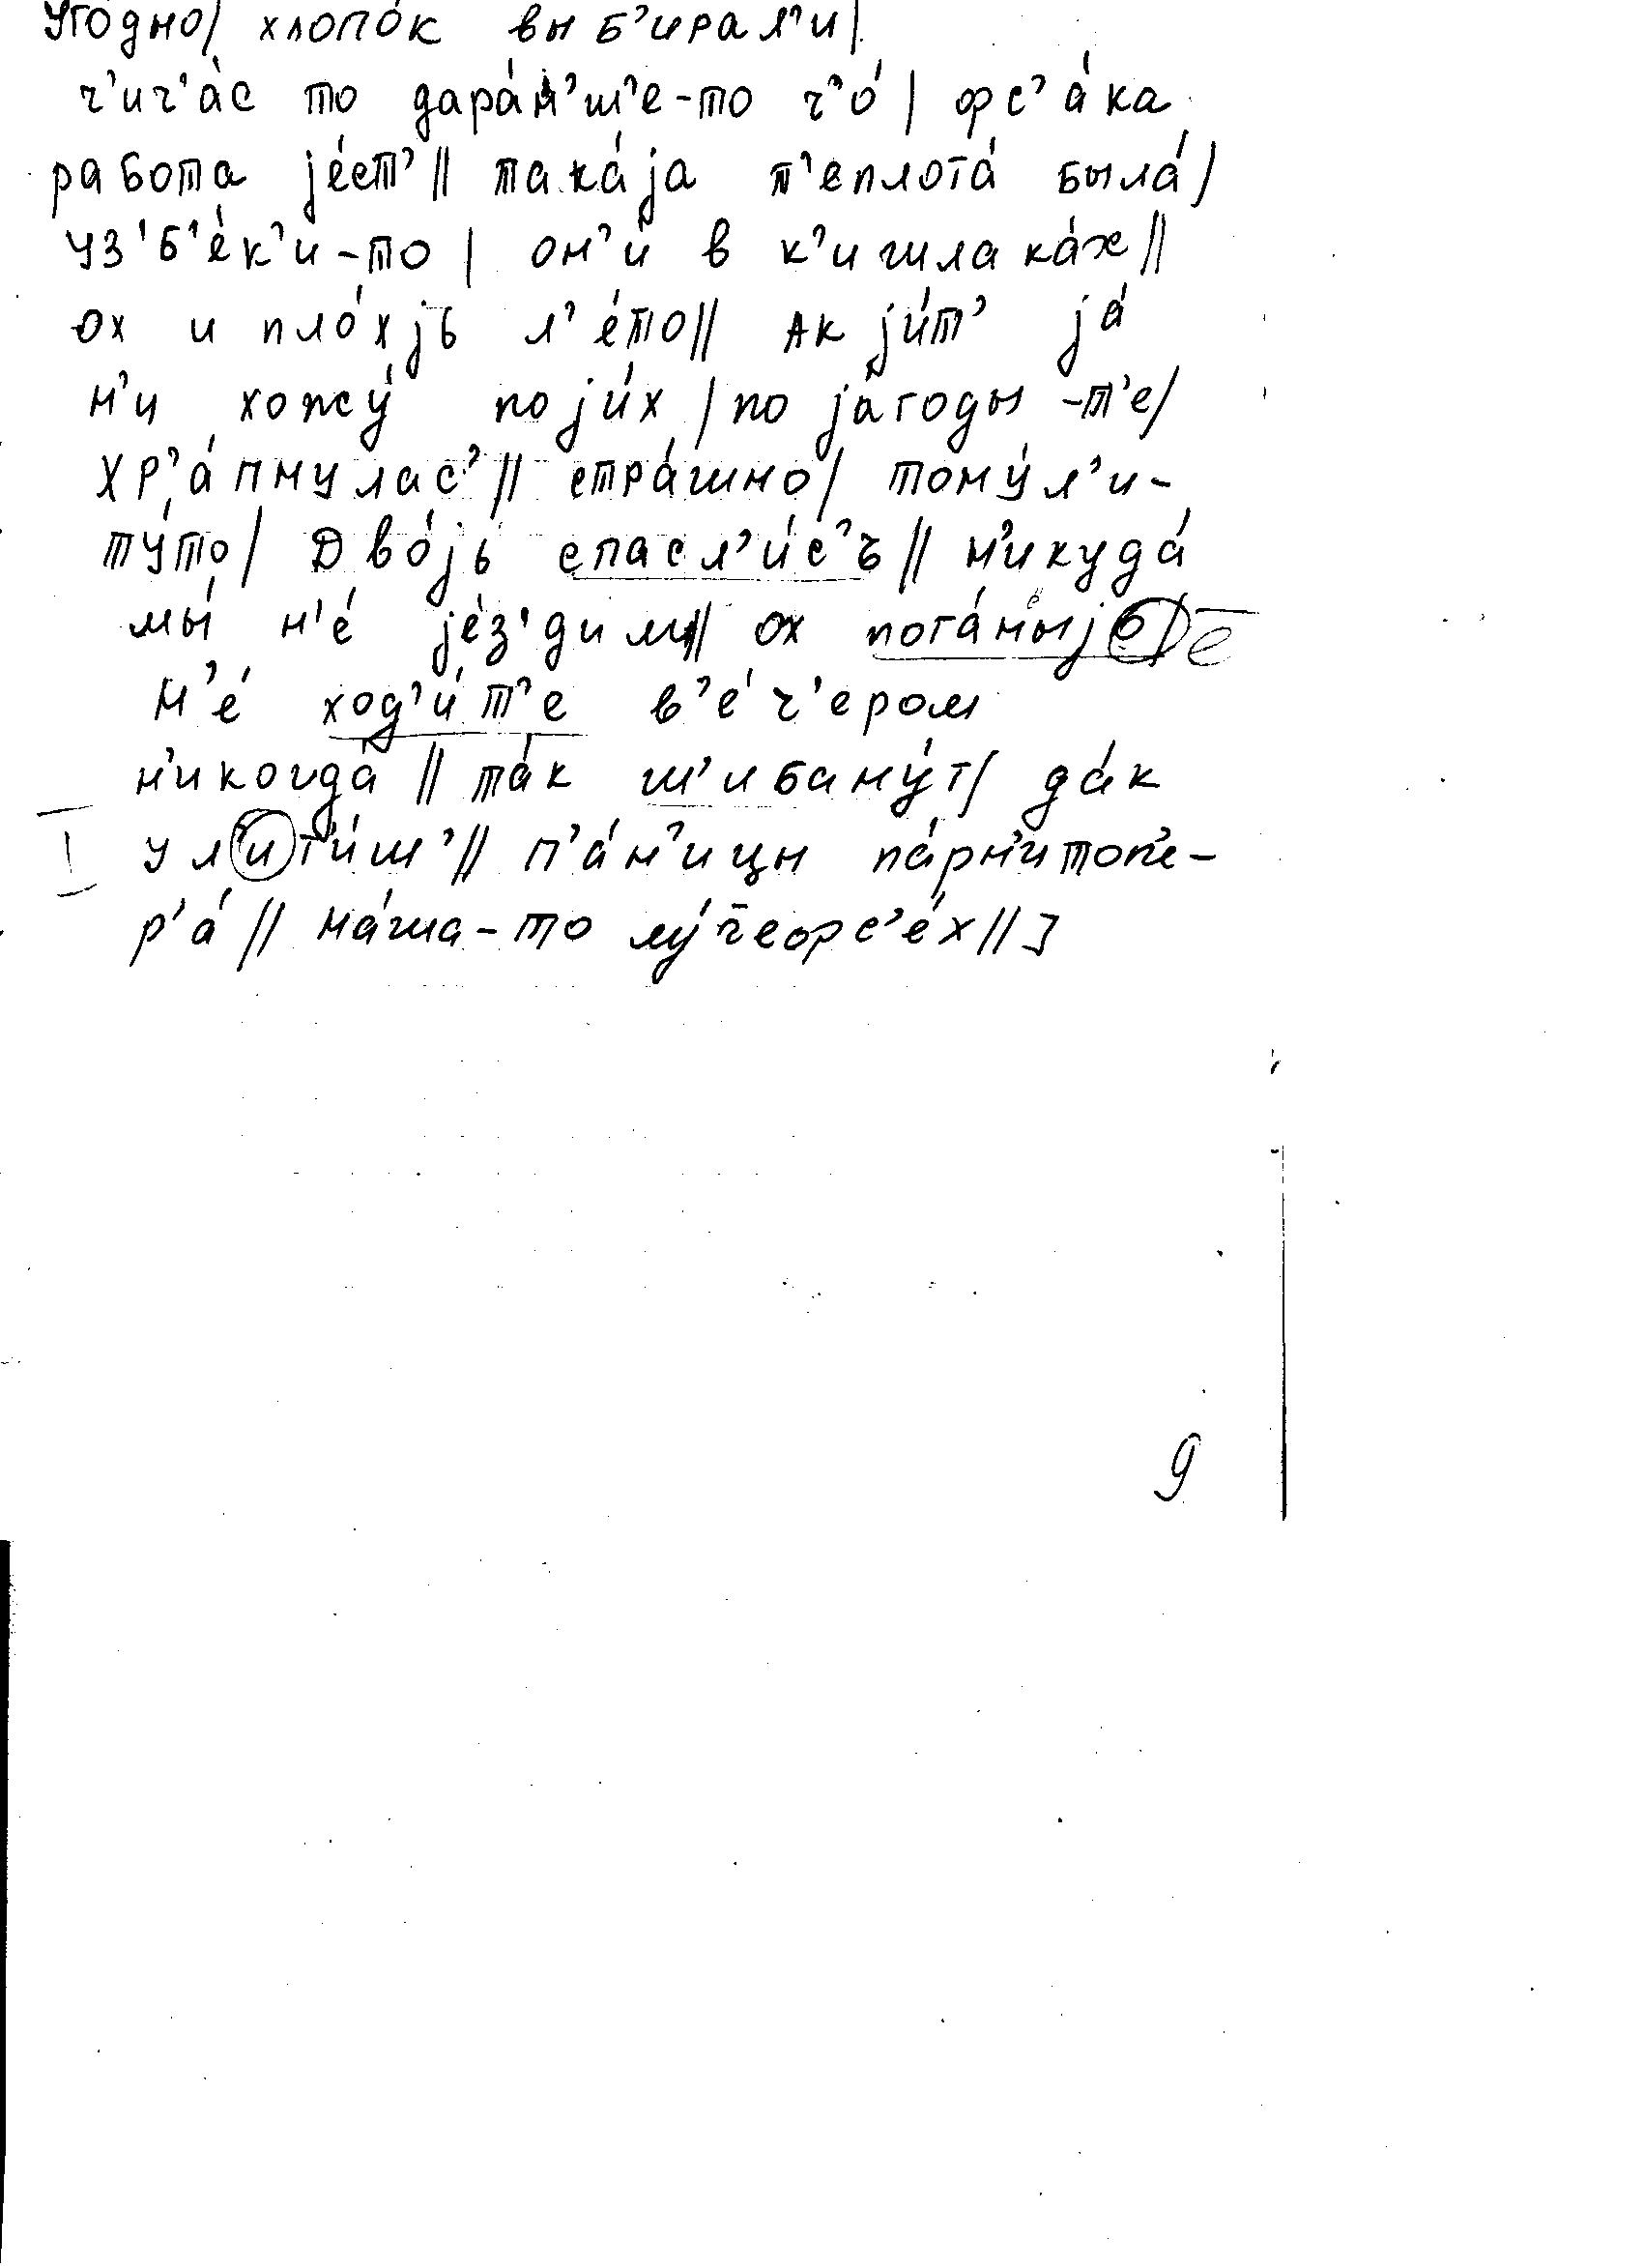 уго́дно/ хлопо́к выб'ирал'и/
ч'ич'а́с то дара́н'ш'е-то ч'о́ | фс'а́ка
работа jе́ст' || така́jа т'еплота́ была́/
уз'б'е́к'и-то | он'и́ в к'ишлака́х ||
ох и пло́хjь л'е́то || ак jи́т' jа́
н'и хожу́ поjи́х / по jа́годы -т'е/
хр'а́пнулас' || стра́шно/ тону́л'и-
ту́то/ Дво́jь спасл'и́с'ъ || н'икуда́
мы́ н'е́ jе́з'дим || ох пога́ныjе е
Н'е́ ход'и́т'е в'е́ч'ером
н'икогда́ || та́к ш'ибану́т/ да́к
I ул'ит'и́ш' || п'а́н'ицы па́рн'ит'оп'е-
р'а́ || на́ша-то лу́ч'еофс'е́х || ]
9